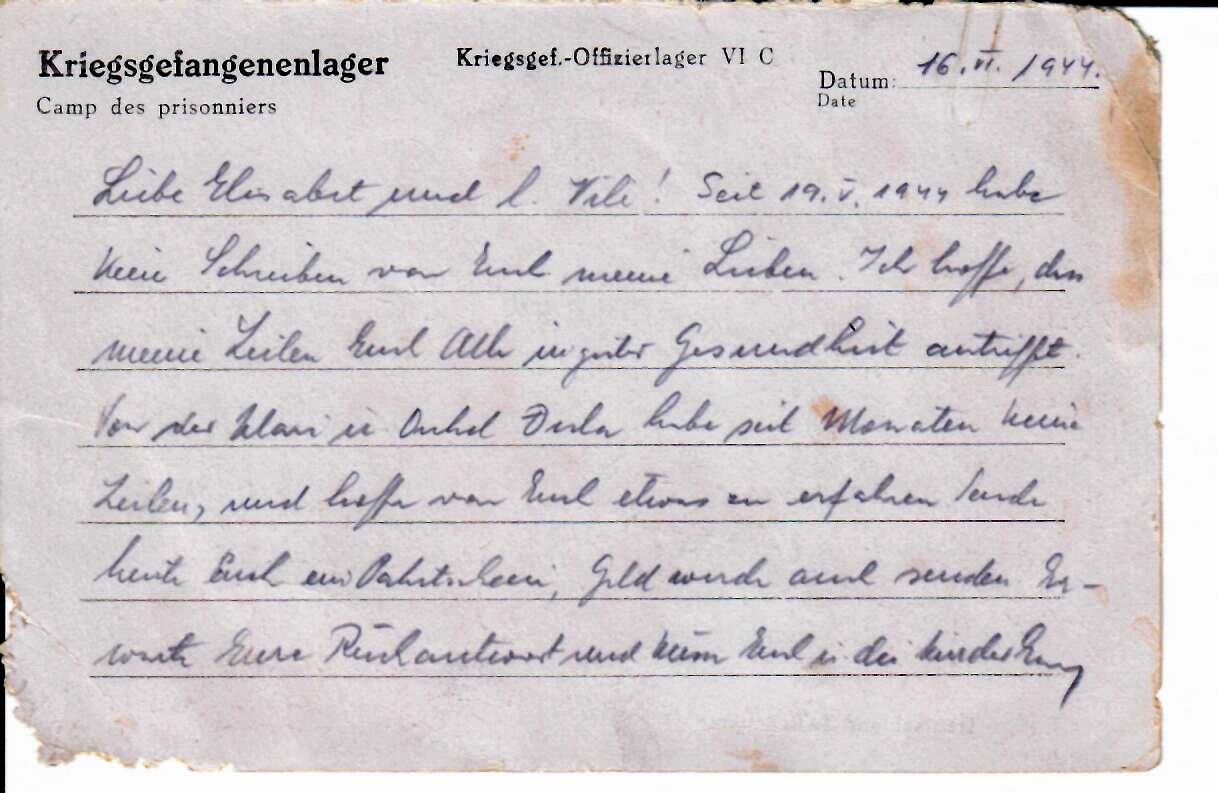 Kriegsgefangenenlager Kriegsgef.-Offizierlager VI C Datum: 16. VI. 1944.
Camp des prisonniers Date
Liebe Elisabet und l. Vili! Seit 19. V. 1944 habe
kein Schreiben von Euch meine Lieben. Ich hoffe, das
meine Zeilen Euch Alle in guter Gesundheit antrifft.
Von der u. Onkel habe seit Monaten keine
Zeilen, und hoffe von Euch etwas zu erfahren Sende
heute Euch ein Paketschein, Geld werde auch senden Er-
warte Eure Rückantwort und küsse Euch u. die Kinder